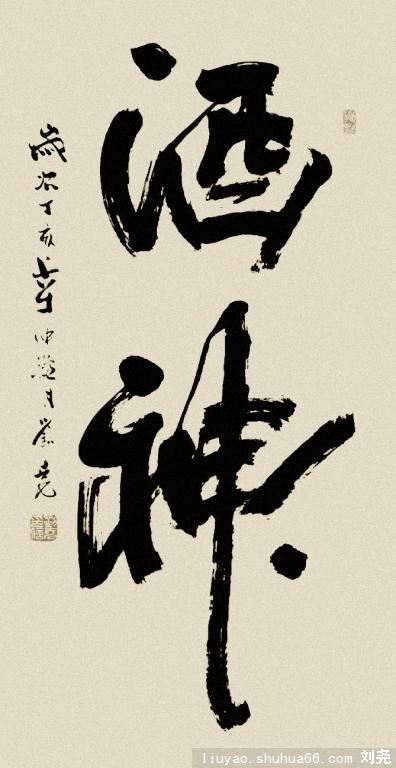 酒神
歲次丁亥年仲夏月劉尧
liuyao.shuhua66.com 刘尧